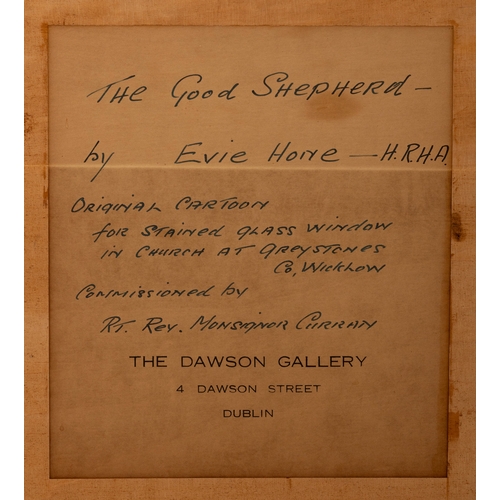 The Good Shepherd —
by Evie Hone — H.R.H.A.
Original Cartoon
for stained glass window
in Church at Greystones
Co, Wicklow
Commissioned by
Rt. Rev. Monsignor Curran
THE DAWSON GALLERY
4 DAWSON STREET
DUBLIN